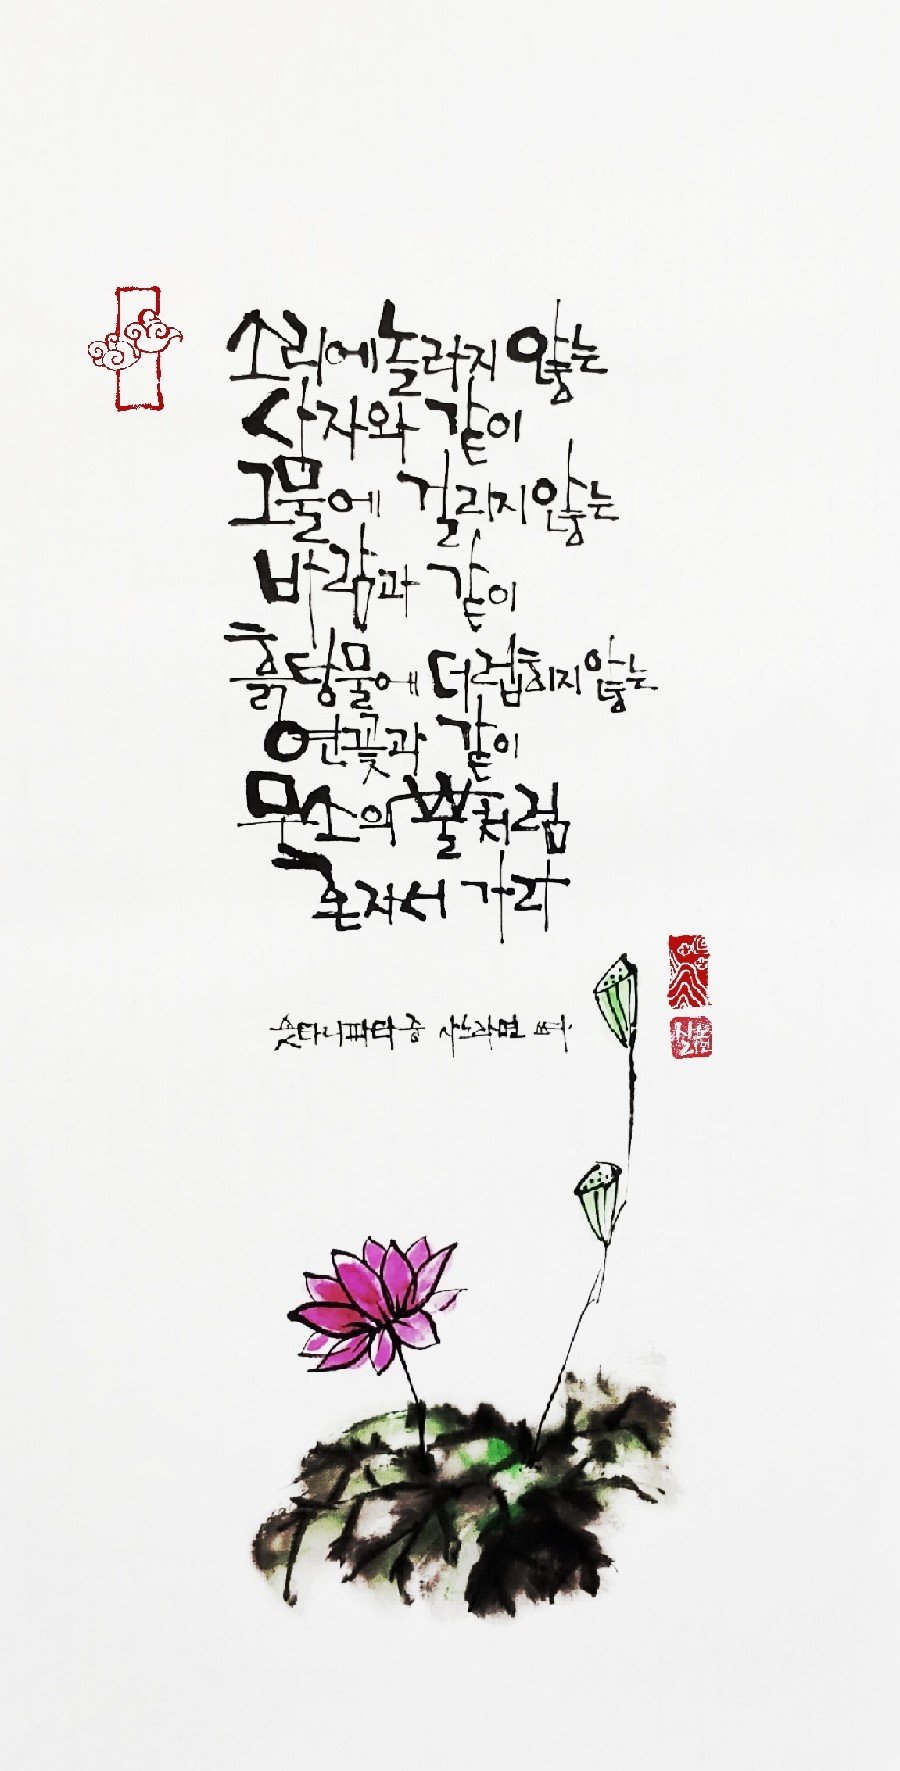 소리에 놀라지 않는
사자와 같이
그물에 걸리지 않는
바람과 같이
흙탕물에 더럽히지 않는
연꽃과 같이
무소의 뿔처럼
혼자서 가라
숫타니파타 중